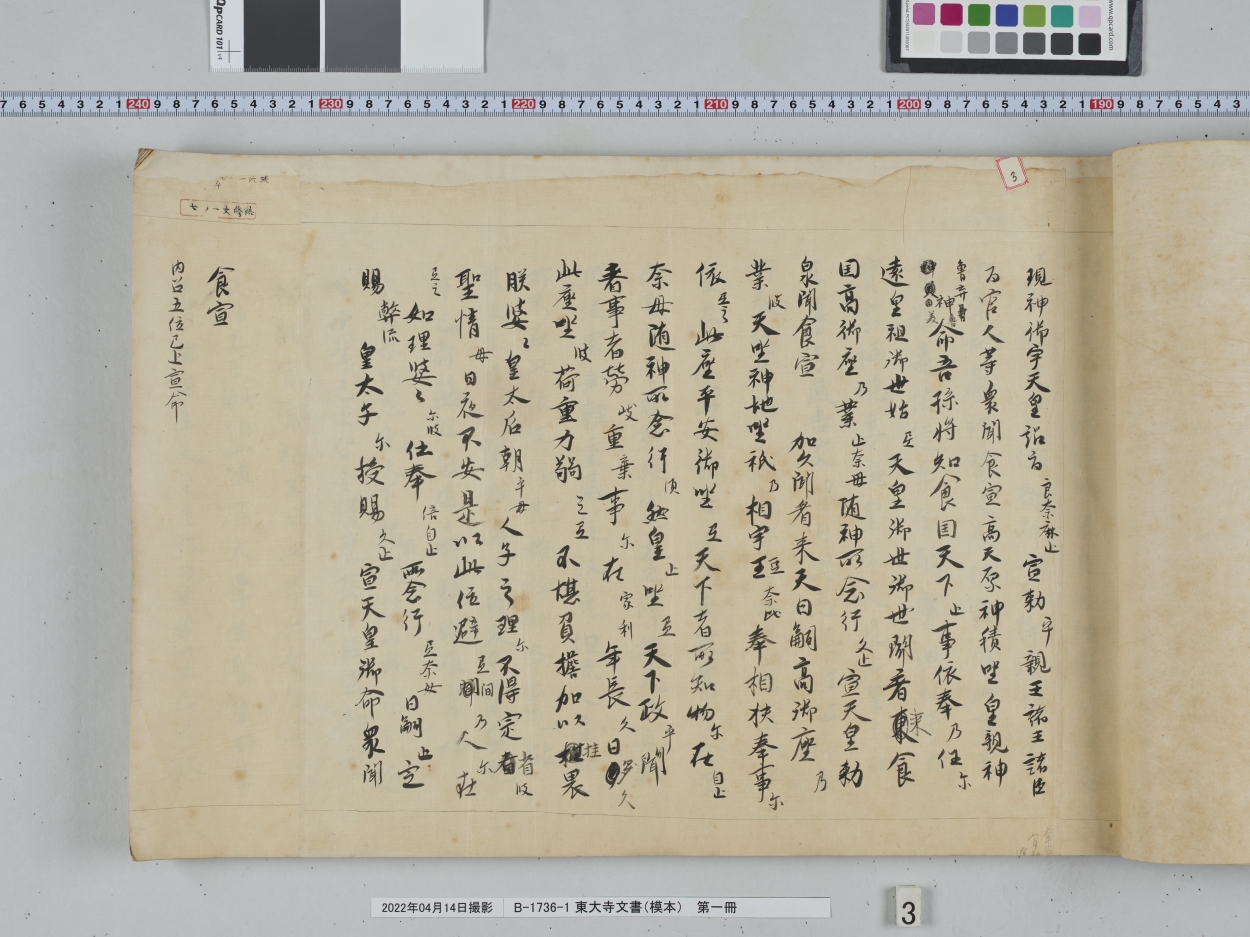 現神御宇天皇詔旨良麻止宣勅乎親王諸王諸臣
百官人等衆聞食宣高天原神積坐皇親神
魯弃神命吾孫将知食国天下止事依奉乃任尓
遠皇祖御世始弖天皇御世御世聞看来食
国高御座乃業止奈母随神所念行久止宣天皇勅
衆聞食宣 加久聞看来天日嗣高御座乃
業波天坐神地坐祇乃相宇豆奈比奉相扶奉事尓
依弖之此座平安御坐弖天下者所知物尓在自止
奈母随神所念行須然皇止坐弖天下政乎聞
看事者労岐重棄事尓在家利年長久日多久
此座坐波荷重力弱之弖不堪負擔加以挂畏
朕婆婆皇太后朝乎母人子之理尓不得定省波
聖情母日夜不安是以此位避弖間乃人尓在
弖之如理婆婆尓波仕奉倍自止所念行弖奈母日嗣止定
賜弊流皇太子尓授賜久止宣天皇御命衆聞
食宣
内召五位已上宣命
3
2022年04月14日撮影 B-1736-1 東大寺文書(模本) 第一冊
3
QPCARD 101 v4
www.qpcard.com
240 230 220 210 200 190